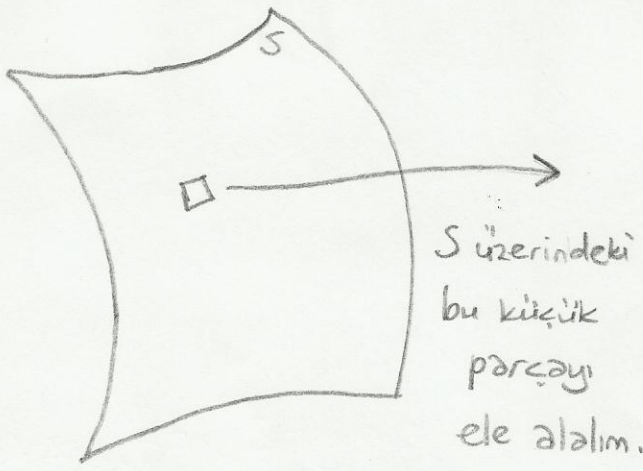 S
S üzerindeki
bu küçük
parçayı
ele alalım.